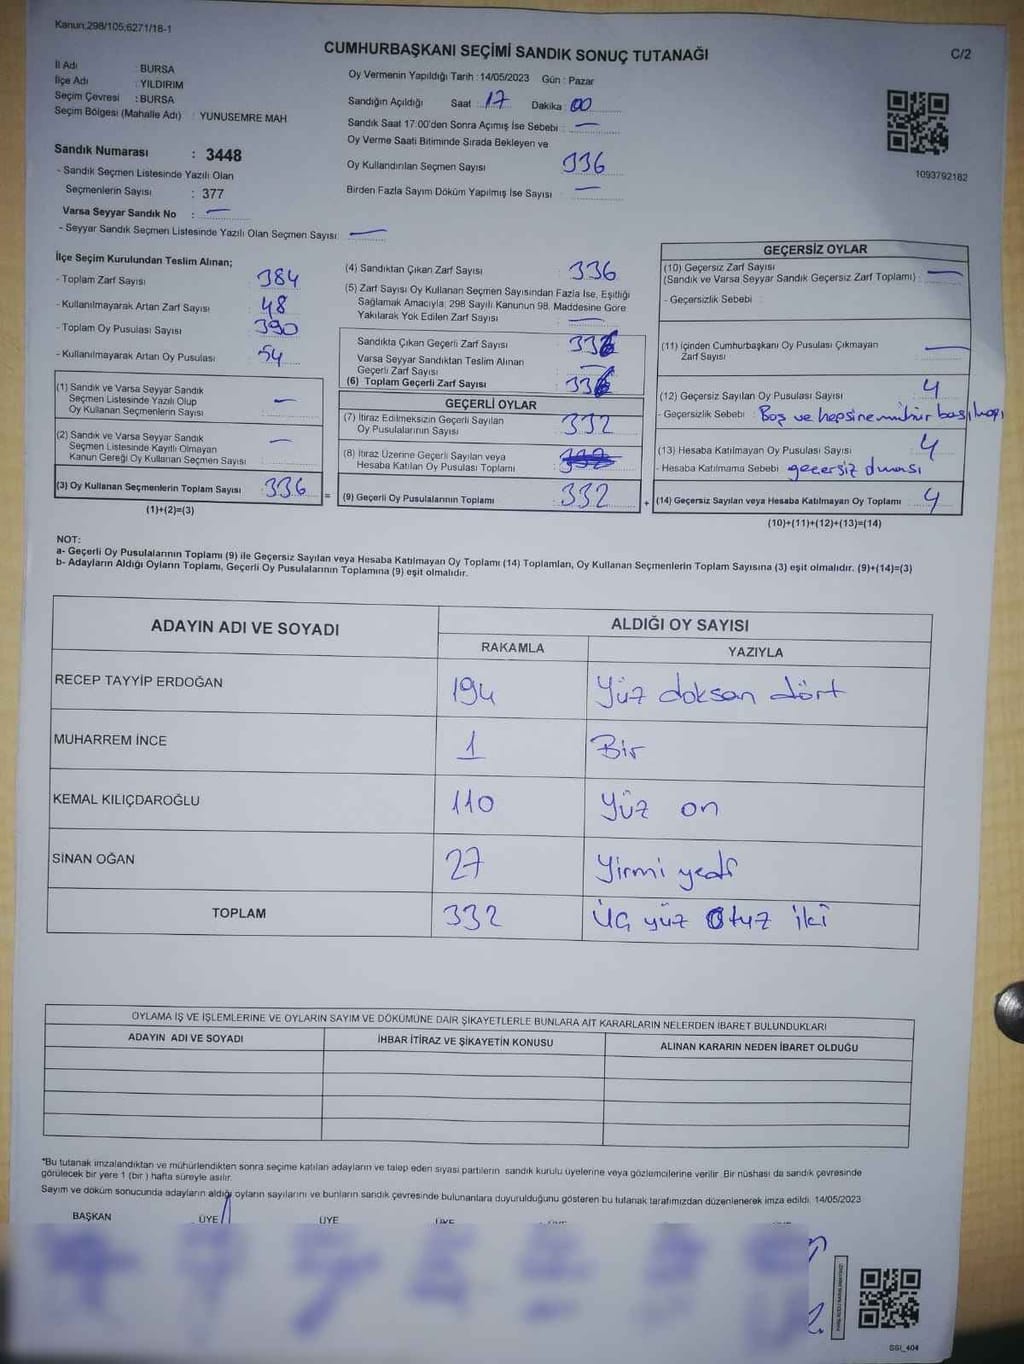 Kanun:298/105,6271/18-1
CUMHURBAŞKANI SEÇİMİ SANDIK SONUÇ TUTANAĞI
C/2
İl Adı : BURSA
İlçe Adı : YILDIRIM
Seçim Çevresi : BURSA
Seçim Bölgesi (Mahalle Adı) : YUNUSEMRE MAH
Sandık Numarası : 3448
- Sandık Seçmen Listesinde Yazılı Olan
Seçmenlerin Sayısı : 377
Varsa Seyyar Sandık No : —
- Seyyar Sandık Seçmen Listesinde Yazılı Olan Seçmen Sayısı: —
Oy Vermenin Yapıldığı Tarih : 14/05/2023 Gün : Pazar
Sandığın Açıldığı Saat : 17 Dakika : 00
Sandık Saat 17:00'den Sonra Açımış İse Sebebi : —
Oy Verme Saati Bitiminde Sırada Bekleyen ve
Oy Kullandırılan Seçmen Sayısı 336
Birden Fazla Sayım Döküm Yapılmış İse Sayısı —
1093792182
İlçe Seçim Kurulundan Teslim Alınan;
- Toplam Zarf Sayısı 384
- Kullanılmayarak Artan Zarf Sayısı 48
- Toplam Oy Pusulası Sayısı 390
- Kullanılmayarak Artan Oy Pusulası 54
(1) Sandık ve Varsa Seyyar Sandık
Seçmen Listesinde Yazılı Olup
Oy Kullanan Seçmenlerin Sayısı —
(2) Sandık ve Varsa Seyyar Sandık
Seçmen Listesinde Kayıtlı Olmayan
Kanun Gereği Oy Kullanan Seçmen Sayısı —
(3) Oy Kullanan Seçmenlerin Toplam Sayısı 336 =
(1)+(2)=(3)
(4) Sandıktan Çıkan Zarf Sayısı 336
(5) Zarf Sayısı Oy Kullanan Seçmen Sayısından Fazla İse, Eşitliği
Sağlamak Amacıyla; 298 Sayılı Kanunun 98. Maddesine Göre
Yakılarak Yok Edilen Zarf Sayısı —
Sandıkta Çıkan Geçerli Zarf Sayısı 336
Varsa Seyyar Sandıktan Teslim Alınan
Geçerli Zarf Sayısı —
(6) Toplam Geçerli Zarf Sayısı 336
GEÇERLİ OYLAR
(7) İtiraz Edilmeksizin Geçerli Sayılan
Oy Pusulalarının Sayısı 332
(8) İtiraz Üzerine Geçerli Sayılan veya
Hesaba Katılan Oy Pusulası Toplamı
(9) Geçerli Oy Pusulalarının Toplamı 332 +
GEÇERSİZ OYLAR
(10) Geçersiz Zarf Sayısı
(Sandık ve Varsa Seyyar Sandık Geçersiz Zarf Toplamı) : —
- Geçersizlik Sebebi :
(11) İçinden Cumhurbaşkanı Oy Pusulası Çıkmayan
Zarf Sayısı —
(12) Geçersiz Sayılan Oy Pusulası Sayısı 4
- Geçersizlik Sebebi : Boş ve hepsine mühür basılması
(13) Hesaba Katılmayan Oy Pusulası Sayısı 4
- Hesaba Katılmama Sebebi geçersiz olması
(14) Geçersiz Sayılan veya Hesaba Katılmayan Oy Toplamı 4
(10)+(11)+(12)+(13)=(14)
NOT:
a- Geçerli Oy Pusulalarının Toplamı (9) ile Geçersiz Sayılan veya Hesaba Katılmayan Oy Toplamı (14) Toplamları, Oy Kullanan Seçmenlerin Toplam Sayısına (3) eşit olmalıdır. (9)+(14)=(3)
b- Adayların Aldığı Oyların Toplamı, Geçerli Oy Pusulalarının Toplamına (9) eşit olmalıdır.
ADAYIN ADI VE SOYADI
ALDIĞI OY SAYISI
RAKAMLA YAZIYLA
RECEP TAYYİP ERDOĞAN 194 Yüz doksan dört
MUHARREM İNCE 1 Bir
KEMAL KILIÇDAROĞLU 110 Yüz on
SİNAN OĞAN 27 Yirmi yedi
TOPLAM 332 Üç yüz Otuz iki
OYLAMA İŞ VE İŞLEMLERİNE VE OYLARIN SAYIM VE DÖKÜMÜNE DAİR ŞİKAYETLERLE BUNLARA AİT KARARLARIN NELERDEN İBARET BULUNDUKLARI
ADAYIN ADI VE SOYADI İHBAR İTİRAZ VE ŞİKAYETİN KONUSU ALINAN KARARIN NEDEN İBARET OLDUĞU
*Bu tutanak imzalandıktan ve mühürlendikten sonra seçime katılan adayların ve talep eden siyasi partilerin sandık kurulu üyelerine veya gözlemcilerine verilir. Bir nüshası da sandık çevresinde
görülecek bir yere 1 (bir ) hafta süreyle asılır.
Sayım ve döküm sonucunda adayların aldığı oyların sayılarını ve bunların sandık çevresinde bulunanlara duyurulduğunu gösteren bu tutanak tarafımızdan düzenlenerek imza edildi. 14/05/2023
BAŞKAN ÜYE ÜYE ÜYE
SSI_404